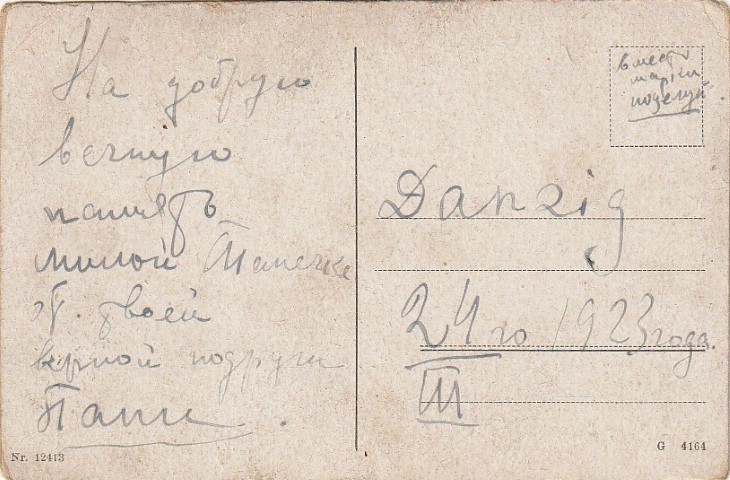 На добрую
вечную
память
милой Танечке
от твоей
верной подруги
Тани.
вместо
марки
поцелуй
Danzig
24го 1923 года.
III
Nr. 12413
G 4164